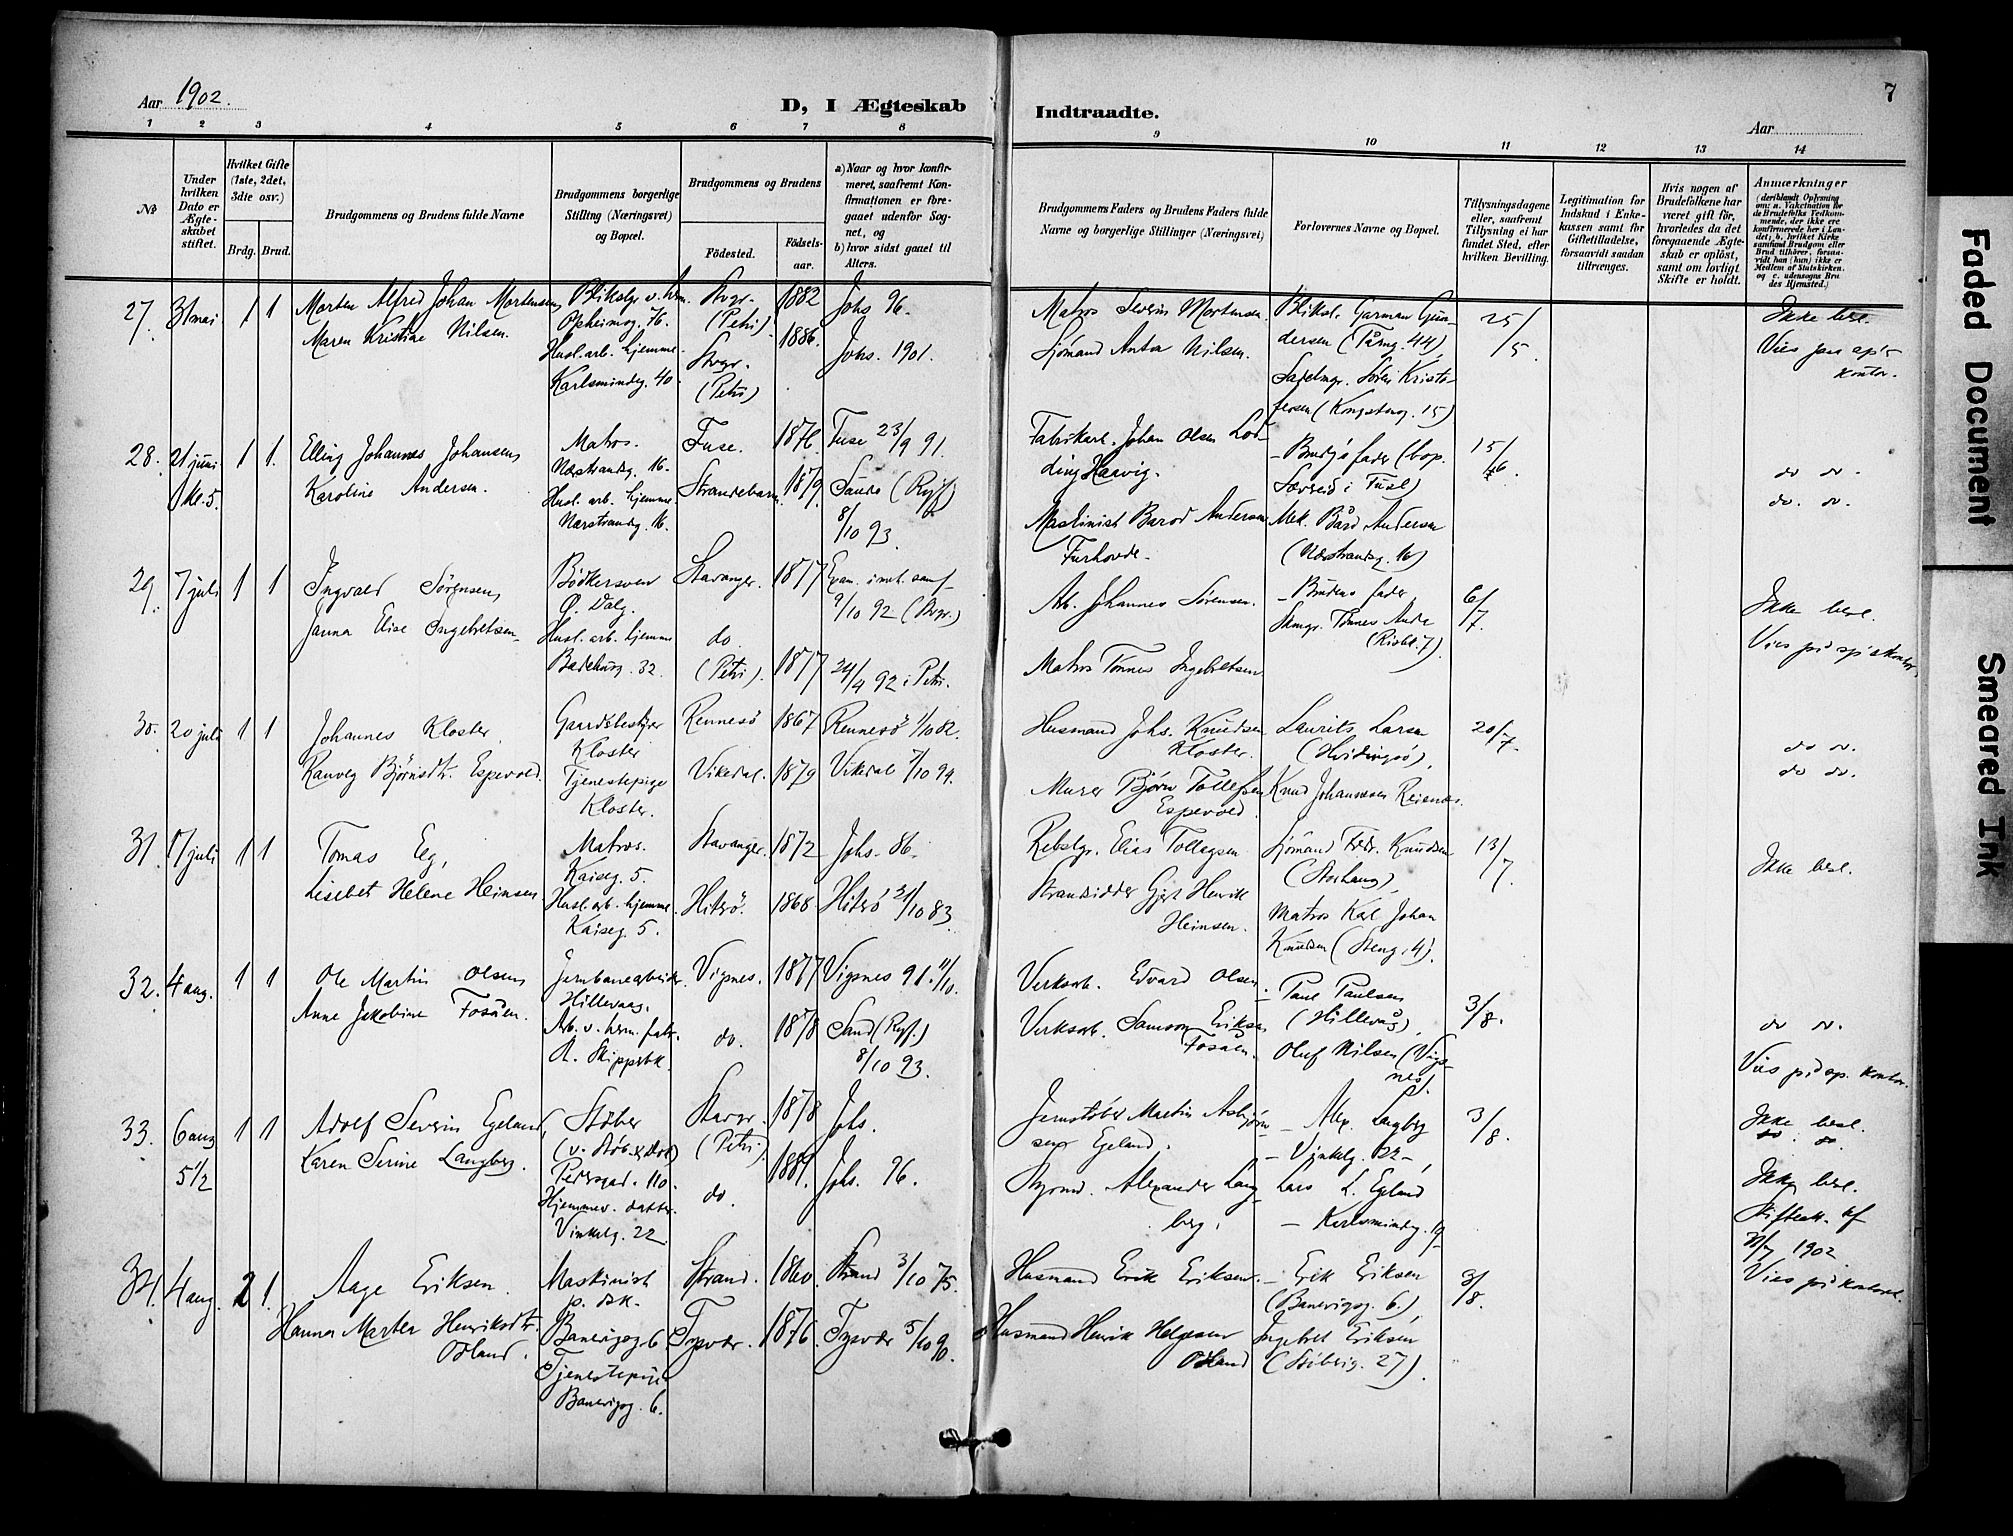 Aar 1902.
D, I Ægteskab
Indtraadte.
7
Aar
1 2 3 4 5 6 7 8 9 10 11 12 13 14
No
Under hvilken Dato er Ægteskabet stiftet.
Hvilket Gifte (1ste, 2det, 3die osv.)
Brdg. Brud.
Brudgommens og Brudens fulde Navne
Brudgommens borgerlige Stilling (Næringsvei) og Bopæl.
Brudgommens og Brudens
Fødested.
Fødselsaar.
a) Naar og hvor konfirmeret, saafremt Konfirmationen er foregaaet udenfor Sognet, og
b) hvor sidst gaaet til Alters.
Brudgommens Faders og Brudens Faders fulde Navne og borgerlige Stillinger (Næringsvei)
Forlovernes Navne og Bopæl.
Tillysningsdagene eller, saafremt Tillysning ei har fundet Sted, efter hvilken Bevilling.
Legitimation for Indskud i Enkekassen samt for Giftetilladelse, forsaavidt saadan tiltrænges.
Hvis nogen af Brudefolkene har været gift før, hvorledes da det foregaaende Ægteskab er opløst, samt om lovligt Skifte er holdt.
Anmærkninger
(deriblandt Oplysning om: a. Vakcination for de Brudefolks Vedkommende, der ikke ere konfirmerede her i Landet; b. hvilket Kirkesamfund Brudgom eller Brud tilhører, forsaavidt han (hun) ikke er Medlem af Statskirken, og c. udensogns Brudes Hjemsted.)
27. 31 mai 1 1
Morten Alfred Johan Mortensen,
Maren Kristine Nilsen.
Opheimsg. 76.
Husl. arb. hjemme.
Karlsmindeg. 40.
Stvgr. (Petri)
Stvgr. (Petri)
1882
1886.
Johs 96.
Johs. 1901.
Matros Severin Mortensen.
Sjömand Anton Nilsen.
Bliksl. Garman Gundersen (Tårng. 44),
Sadelmgr. Sören Kristofersen (Kongsteng. 15)
25/5.
Ikke besl.
28. 21 juni kl. 5. 1 1.
Elling Johannes Johansen,
Karoline Andersen.
Matros.
Næstrandg. 16.
Husl. arb. hjemme
Nærstrandg. 16.
Fuse.
Strandebarm.
1876.
1879.
Fuse 23/9 91.
Saude (Ryf)
8/10 93.
Fabrikarb. Johan Olsen
Haavig.
Maskinist Barod Andersen
Furhovde.
- Brudg's fader (bop. Sævreid i Fuse)
Mek. Bård Andersen
(Næstrandg. 16)
15/6.
do do.
do. do.
29. 7 juli 1 1
Ingvald Sörensen,
Janna Elise Ingebretsen.
Bödkersvend
Ø. Dalg.
Husl. arb. hjemme
Badehusg. 32.
Stavanger.
do (Petri).
1877
1877
9/10 92 (Stvgr.)
24/4 92 i Petri.
Arb. Johannes Sörensen.
Matros Tönnes Ingebretsen
- Brudens fader
6/7.
Ikke besl.
30. 20 juli 1 1
Johannes Kloster,
Ranveg Björnsdtr. Espevold.
Gaardsbestyrer
Kloster
Tjenestepige
Kloster.
Rennesö
Vikedal.
1867
1879
Rennesö 1/10 82.
Vikedal 7/10 94.
Husmand Johs. Knudsen Kloster.
Murer Björn Tollefsen Espevold.
Laurits Larsen
(Hvidingsö),
Knud Johannesen Reienes.
20/7.
do do.
do do.
31. 17 juli 1 1
Tomas Eeg,
Lisebet Helene Heinsen.
Matros.
Kaiseg. 5.
Husl. arb. hjemme.
Kaiseg. 5.
Stavanger.
Hitrö.
1872
1868.
Johs. 86.
Hitrö 21/10 83.
Rebslgr. Elias Tollagsen
Strandsidder Gjert Henrik Heinsen.
Sjömand Fredr. Knudsen
(Storhaug),
Matros Karl Johan Knudsen (Steng. 4).
13/7.
Ikke besl.
32. 4 aug. 1 1
Ole Martin Olsen,
Anne Jakobine Fosåen.
Jernbanearbeider
Hillevaag.
Arb. v. herm. fabr.
Vigsnes.
do.
1877
1878
Vigsnes 91. 11/10.
Sand (Ryf.)
8/10 93.
Verksarb. Edvard Olsen.
Verksarb. Samson Eriksen Fosåen.
Paul Paulsen
(Hillevåg),
Oluf Nilsen (Vigsnes).
3/8.
do do.
33. 6 aug 5 1/2 1 1
Adolf Severin Egeland,
Karen Serine Langberg.
Stöber
Pedersgad. 110.
Hjemmev. datter.
Vinkelg. 22.
Stavgr. (Petri)
do.
1878
Johs.
Johs. 96.
Jernstöber Martin Asbjörnsen Egeland.
Alexander Langberg.
- Alex. Langberg
- Vinkelg. 22 -,
Lars L. Egeland
- Karlsmindeg. 19
3/8.
Ikke besl.
do. do
34. 4 aug. 2 1.
Aage Eriksen.
Hanna Marta Henriksdtr. Ödland.
Maskinist
Banevigsg. 6.
Tjenestepige
Banevigsg. 6.
Strand.
Tysvær.
1860.
1876.
Strand 3/10 75.
Tysvær 5/10 90.
Husmand Erik Eriksen.
Husmand Henrik Helgesen Ödland
- Erik Eriksen
(Banevigsg. 6.),
Ingebret Eriksen
(Støberig. 27).
3/8.
Ikke besl.
Skifteatt. af
1902
Faded Document
Smeared Ink